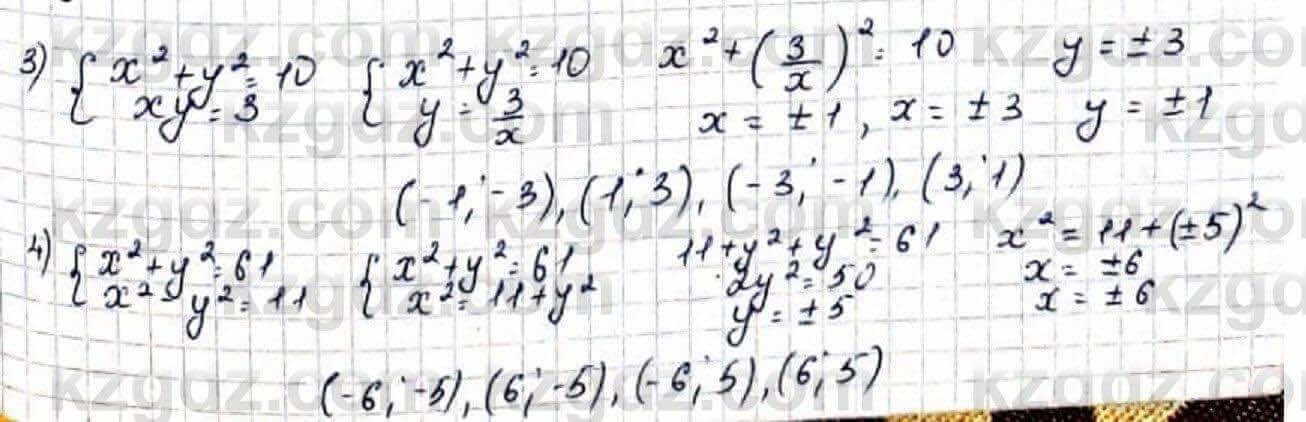 3) { x² + y² = 10   { x² + y² = 10   x² + (3/x)² = 10   y = ±3
xy = 3   y = 3/x   x = ±1, x = ±3   y = ±1
(-1; -3), (1; 3), (-3; -1), (3; 1)
4) { x² + y² = 61   { x² + y² = 61   11 + y² + y² = 61   x² = 11 + (±5)²
x² - y² = 11   x² = 11 + y²   2y² = 50   x = ±6
y = ±5   x = ±6
(-6; -5), (6; -5), (-6; 5), (6; 5)
kzgdz.com